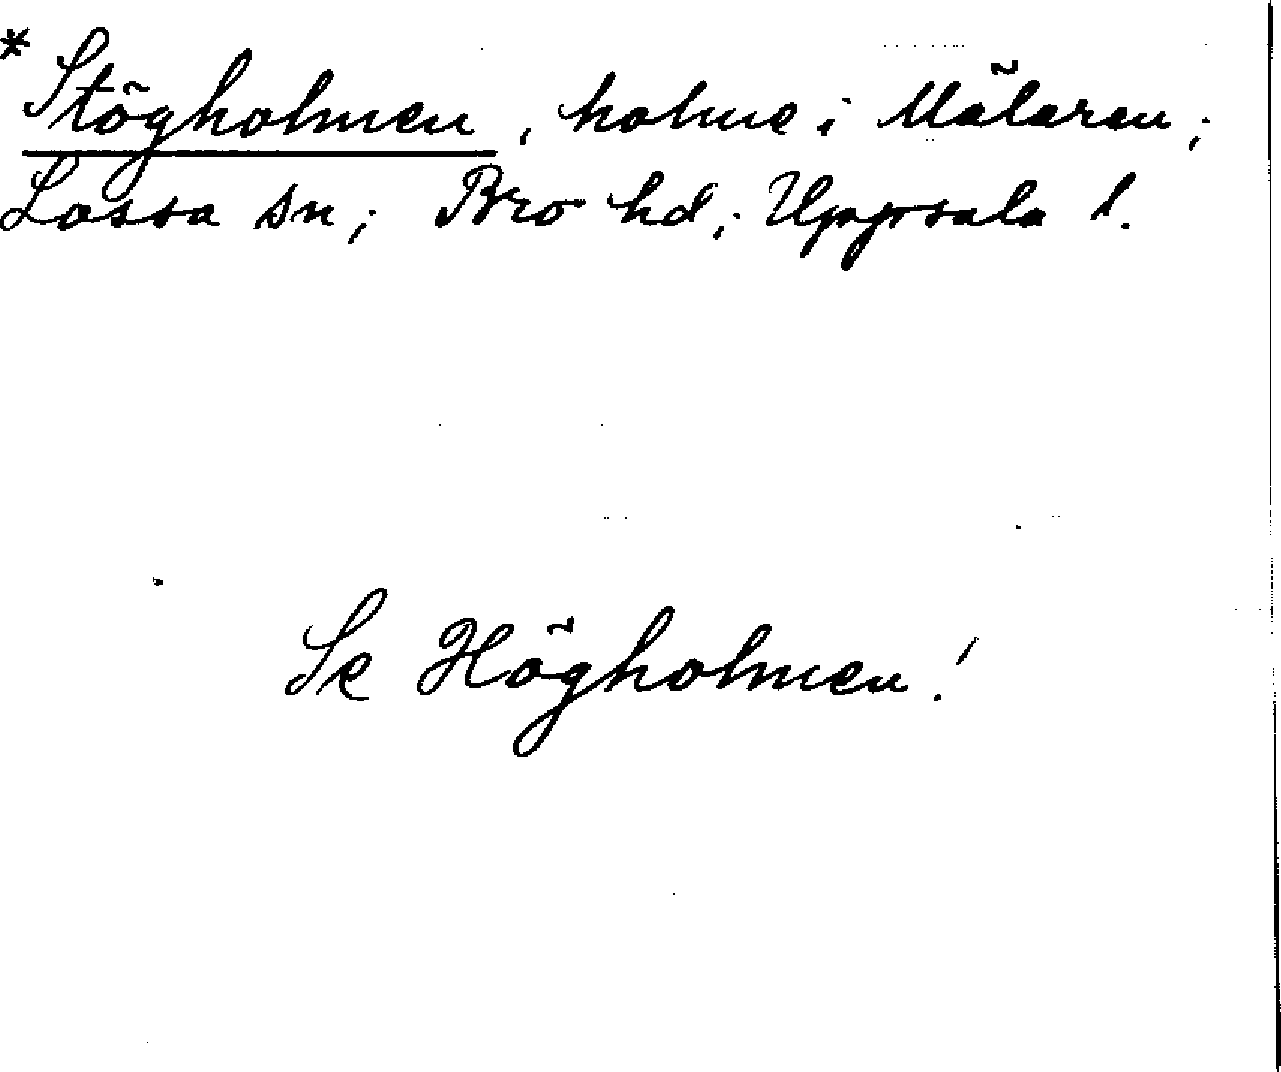 * Stögholmen, holme i Mälaren;
Lossa sn; Bro hd; Uppsala l.
Se Högholmen!